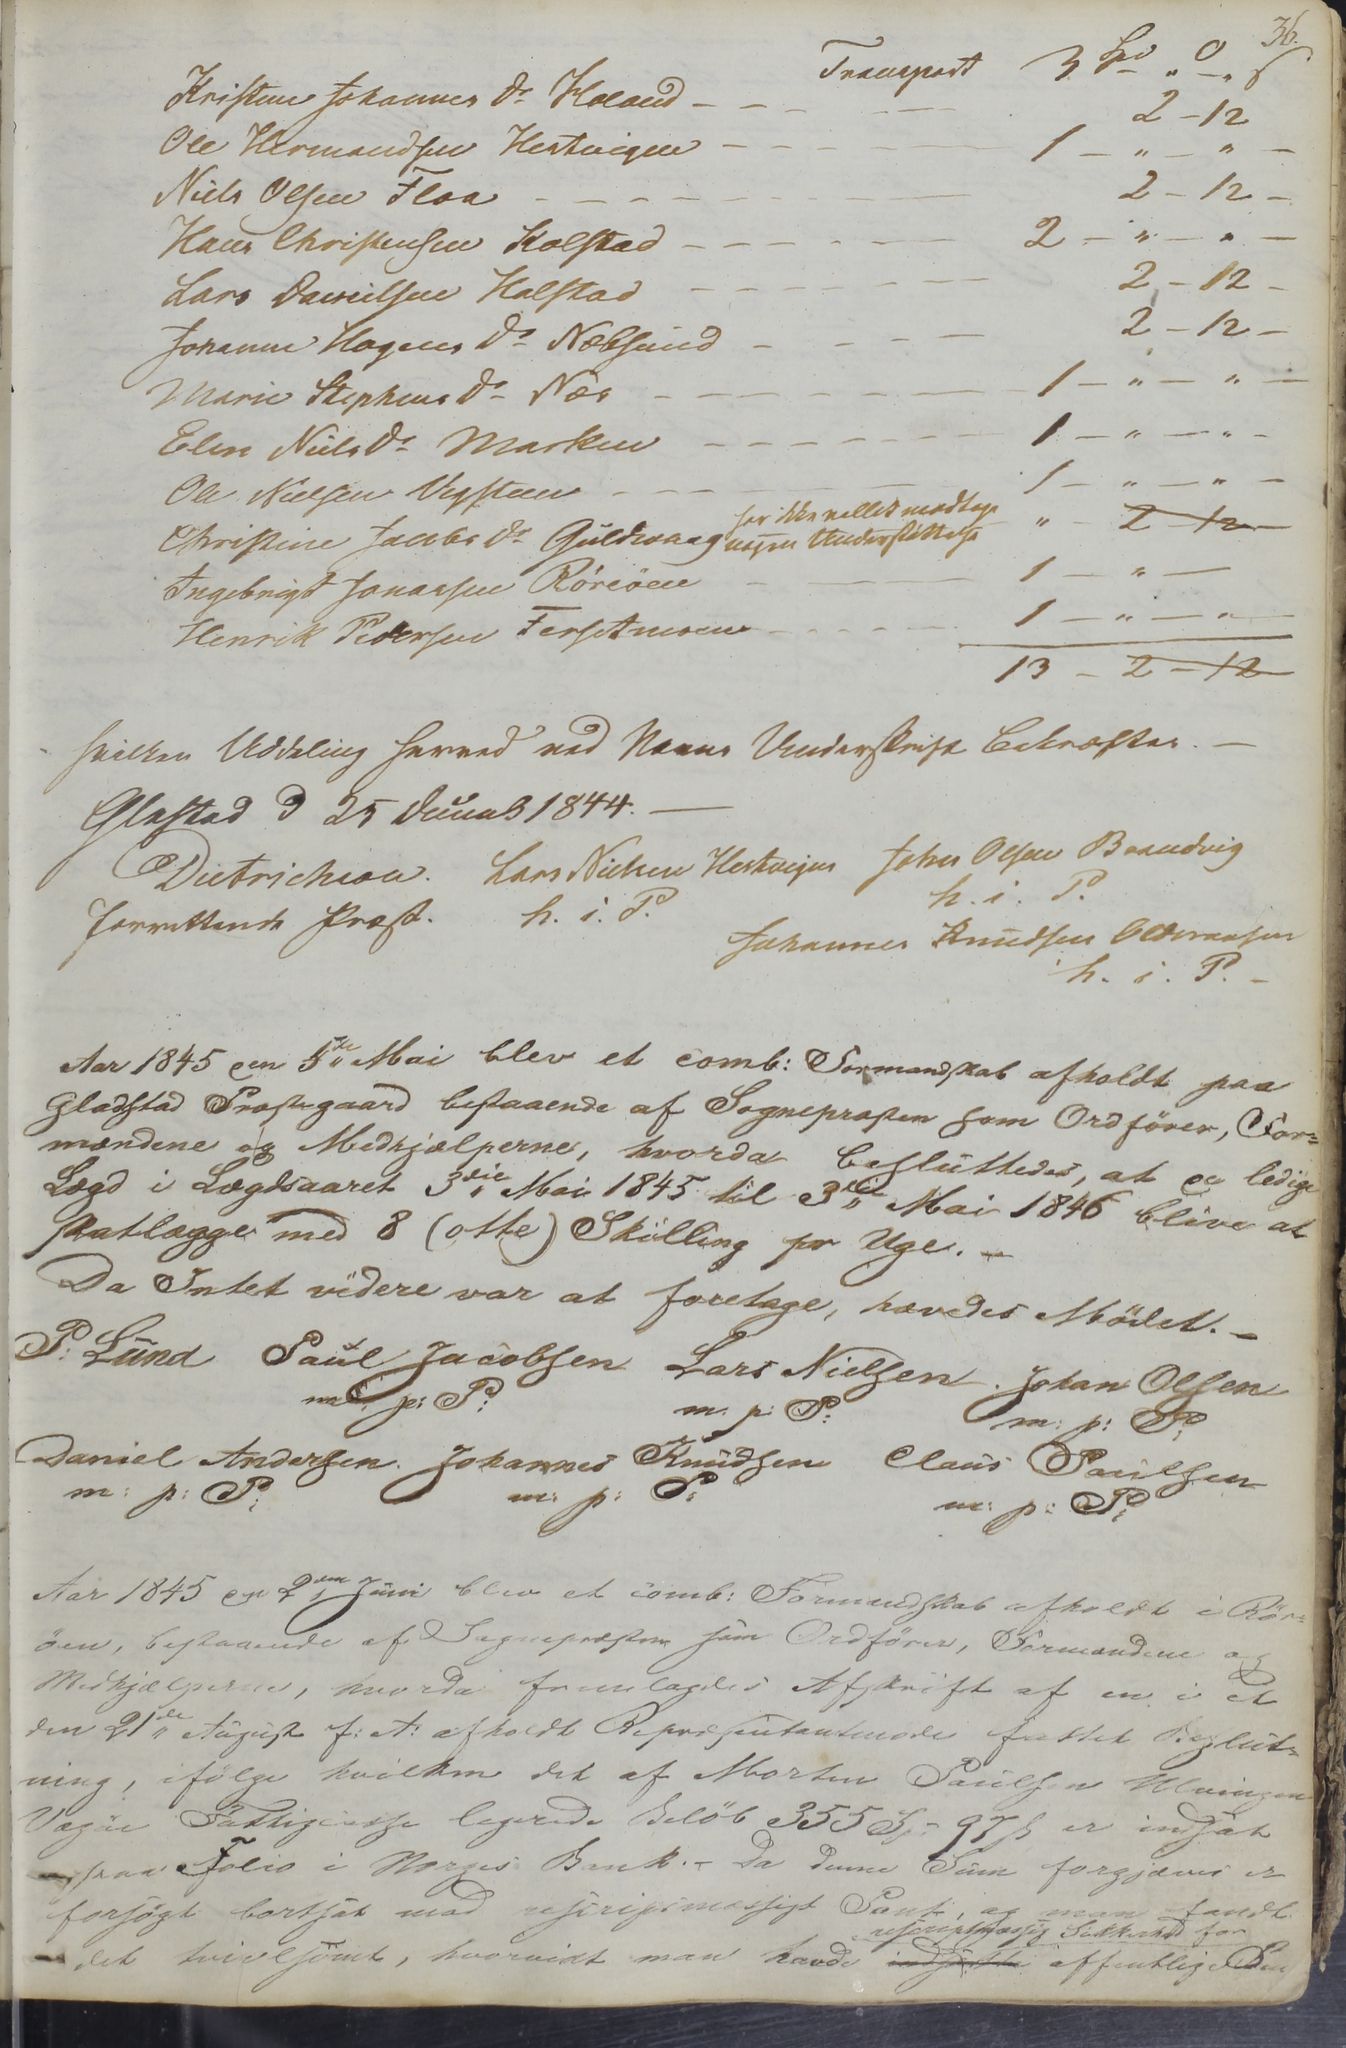 36.
Transport 3 Spd " 0 - " ß
Kristine Johannes Dr Holand - - - 2 - 12
Ole Hermandsen Hestvigen - - - 1 - " - " -
Niels Olsen Floa - - - 2 - 12 -
Hans Christensen Kolstad - - - 2 - " - " -
Lars Danielsen Halstad - - - 2 - 12 -
Johanne Hagens Dr Næbsund - - - 2 - 12 -
Marie Stephens Dr Næs - - - 1 - " - " -
Elen Niels Dr Marken - - - 1 - " - " -
Ole Nielsen Vegsteen - - - 1 - " - " -
har ikke villet modtage
Christine Jacobs Dr Guldvaag nogen Understøttelse " - 2 - 12 -
Ingebrigt Jonassen Röröen - - - 1 - " -
Henrik Pedersen Fersetmoen - - - 1 - " - " -
13 - 2 - 12
hvilken Uddeling herved ved Navns Underskrift bekræftes. -
Gladstad d 25 1844. -
Dietrichson. Lars Nielsen Hestvigen Johan Olsen Brandvig
forrettende Præst. h. i. P. h. i. P.
Johannes Knudsen
h. i. P. -
Aar 1845 den 5te Mai blev et comb: Formandskab afholdt paa
Gladstad Præstegaard bestaaende af Sognepræsten som Ordförer, For=
mændene og Medhjælperne, hvorda besluttedes, at de ledige
Lægd i Lægdsaaret 3die Mai 1845 til 3die Mai 1846 blive at
skatlægge med 8 (otte) Skilling pr Uge. -
Da Intet videre var at foretage, hævedes Mödet. -
P: Lund Paul Jacobsen Lars Nielsen. Johan Olsen
m: p: P: m: p: P: m: p: P:
Daniel Andersen. Johannes Knudsen Claus Paulsen
m: p: P: m: p: P: m: p: P:
Aar 1845 den 2den Juni blev et comb: Formandskab afholdt i Rör=
öen, bestaaende af Sognepræsten som Ordförer, Formændene og
Medhjælperne, hvorda fremlagdes Afskrift af en i et
den 21de August f: A: afholdt Repræsentantmöde fattet Beslut=
ning, ifölge hvilken det af Morten Paulsen Ulvingen
Vegöe Fattigcasse legerede Belöb 355 Sp: 97 ß er indsat
paa Folio i Norges Bank. - Da denne Sum forgjæves er
forsögt bortsat mod rescriptmæssigt Pant, og man fandt
rescriptmæssig Sikkerhed for
det tvivlsomt, hvorvidt man havde indsatte offentlige